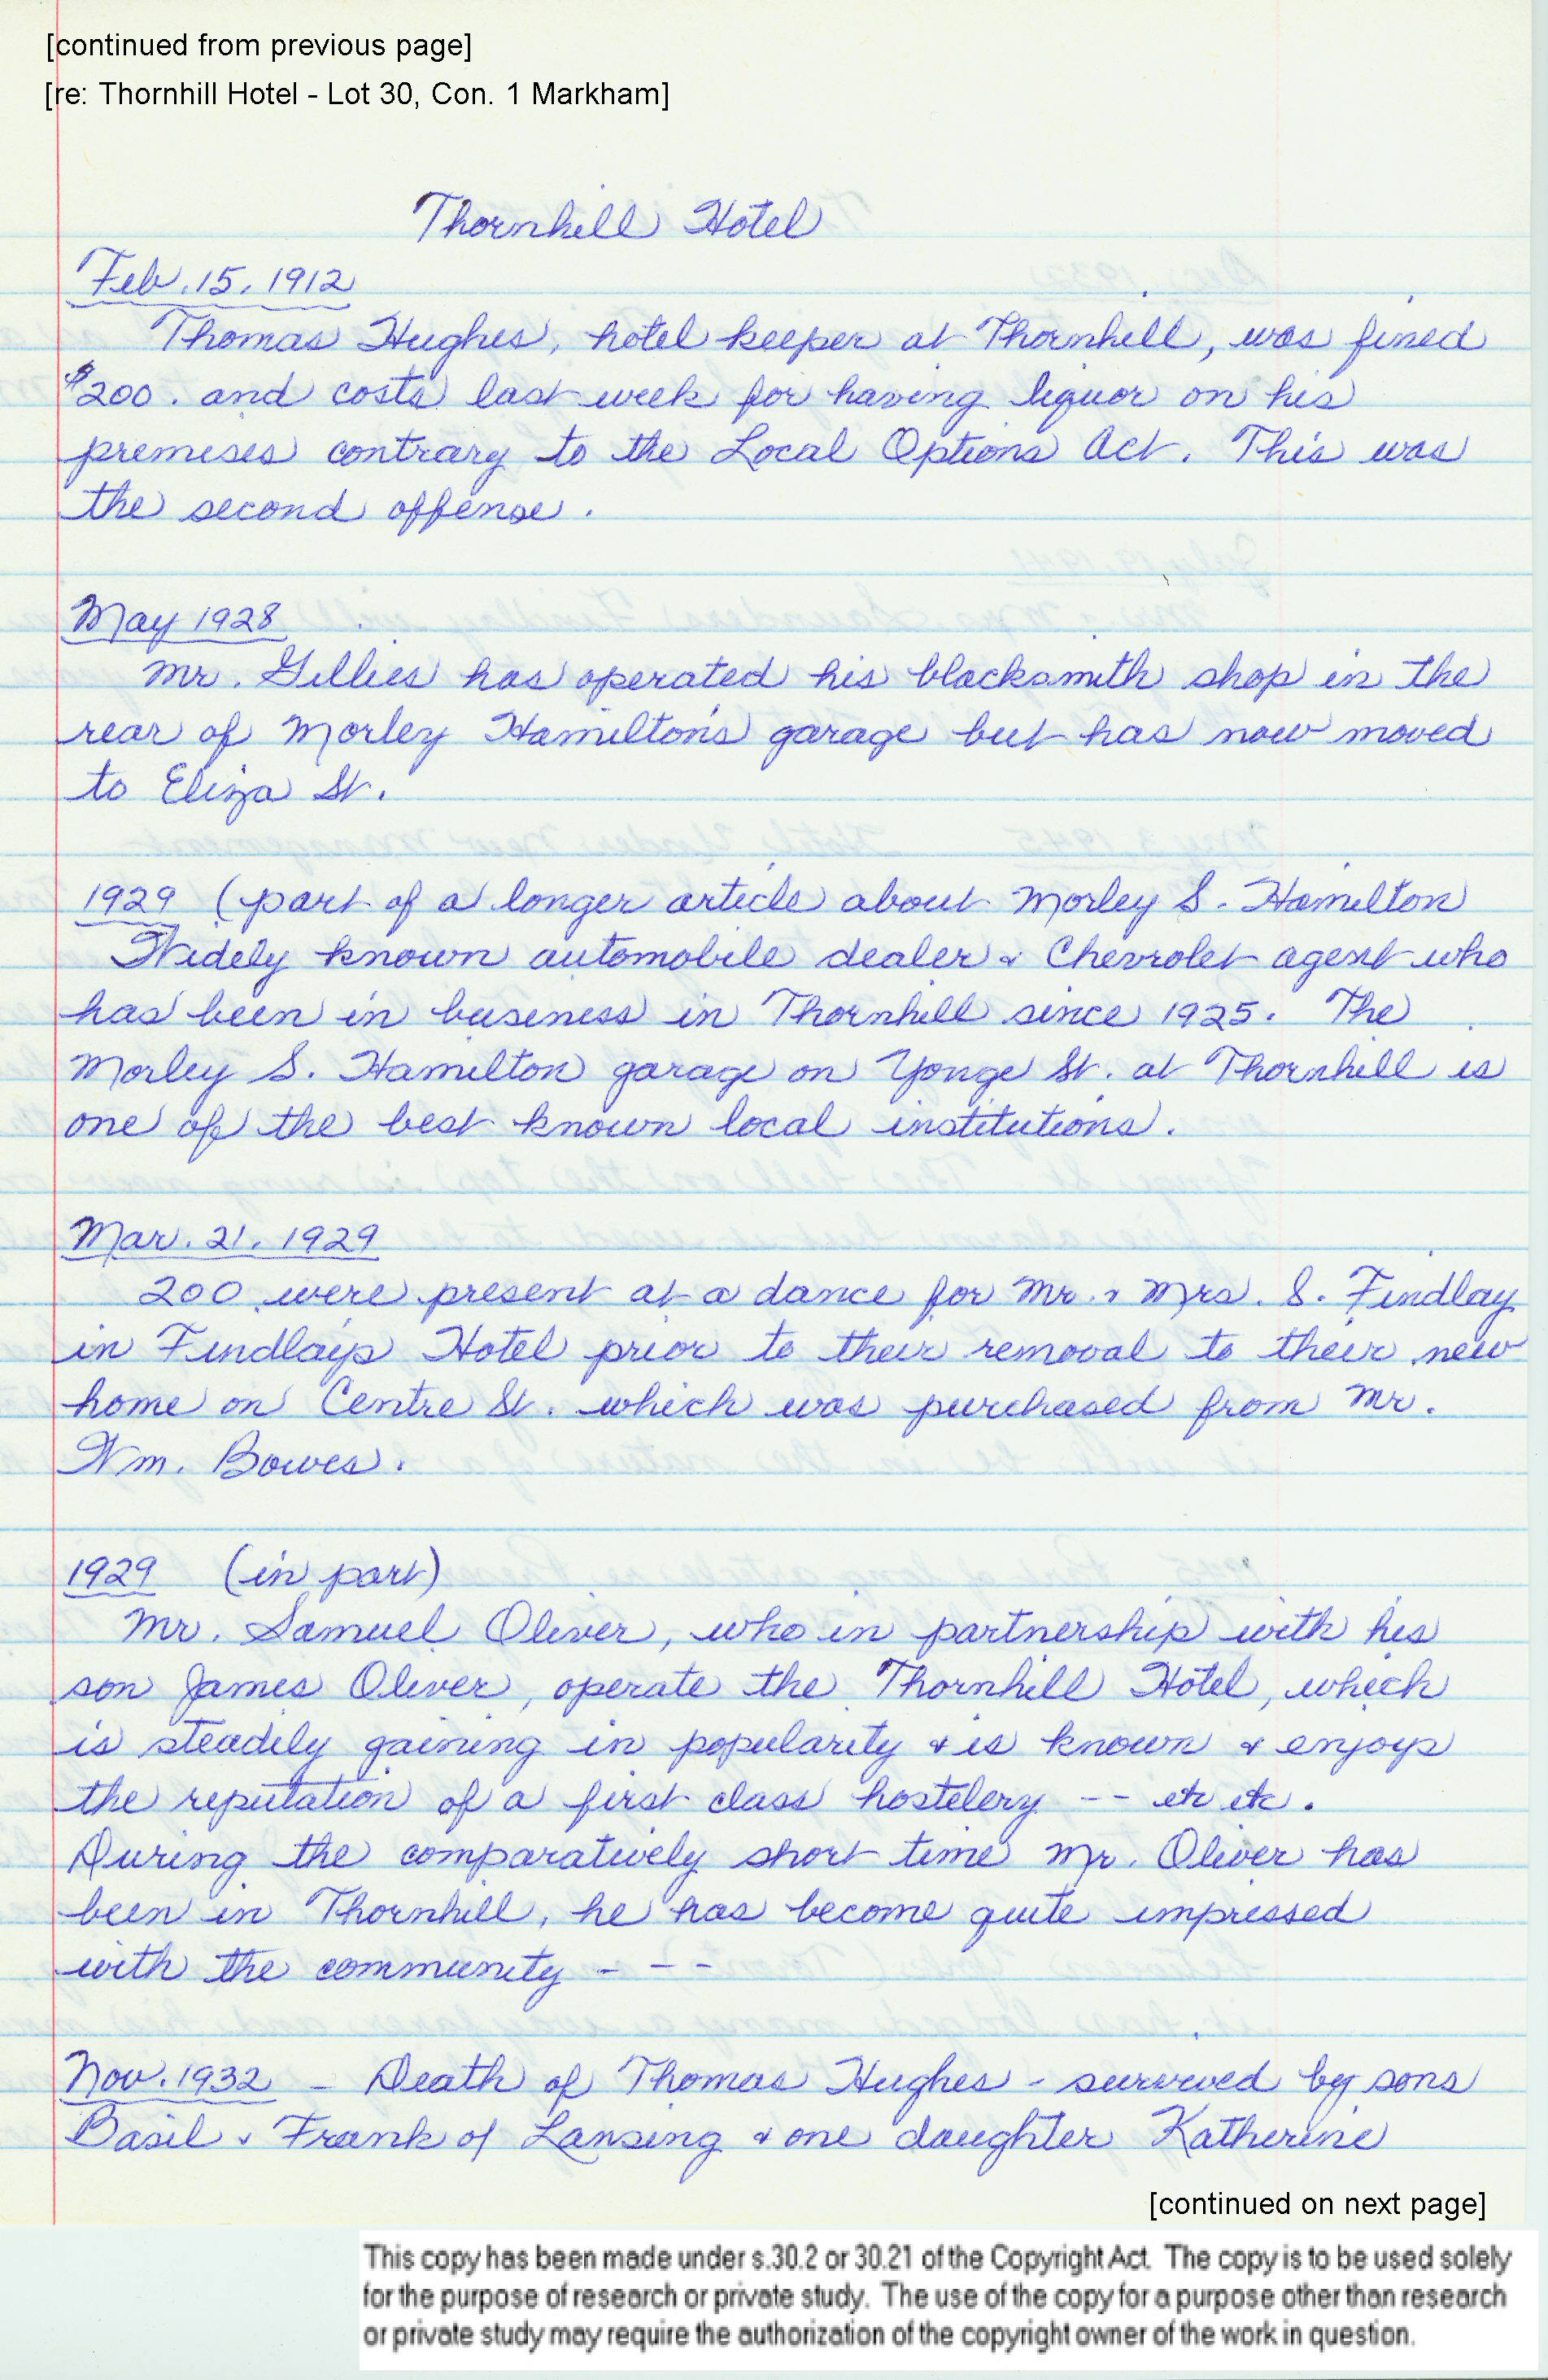 [continued from previous page]
[re: Thornhill Hotel - Lot 30, Con. 1 Markham]
Thornhill Hotel
Feb. 15, 1912
Thomas Hughes, hotel keeper at Thornhill, was fined
$200. and costs last week for having liquor on his
premises contrary to the Local Options Act. This was
the second offense.
May 1928
Mr. Gillies has operated his blacksmith shop in the
rear of Morley Hamilton's garage but has now moved
to Eliza St.
1929 (part of a longer article about Morley S. Hamilton
Widely known automobile dealer & Chevrolet agent who
has been in business in Thornhill since 1925. The
Morley S. Hamilton garage on Yonge St. at Thornhill is
one of the best known local institutions.
Mar. 21, 1929
200 were present at a dance for Mr. & Mrs. S. Findlay
in Findlay's Hotel prior to their removal to their new
home on Centre St. which was purchased from Mr.
Wm. Bowes.
1929 (in part)
Mr. Samuel Oliver, who in partnership with his
son James Oliver, operate the Thornhill Hotel, which
is steadily gaining in popularity & is known & enjoys
the reputation of a first class hostelery -- etc etc.
During the comparatively short time Mr. Oliver has
been in Thornhill, he has become quite impressed
with the community - - -
Nov. 1932 - Death of Thomas Hughes - survived by sons
Basil & Frank of Lansing & one daughter Katherine
[continued on next page]
This copy has been made under s.30.2 or 30.21 of the Copyright Act. The copy is to be used solely
for the purpose of research or private study. The use of the copy for a purpose other than research
or private study may require the authorization of the copyright owner of the work in question.